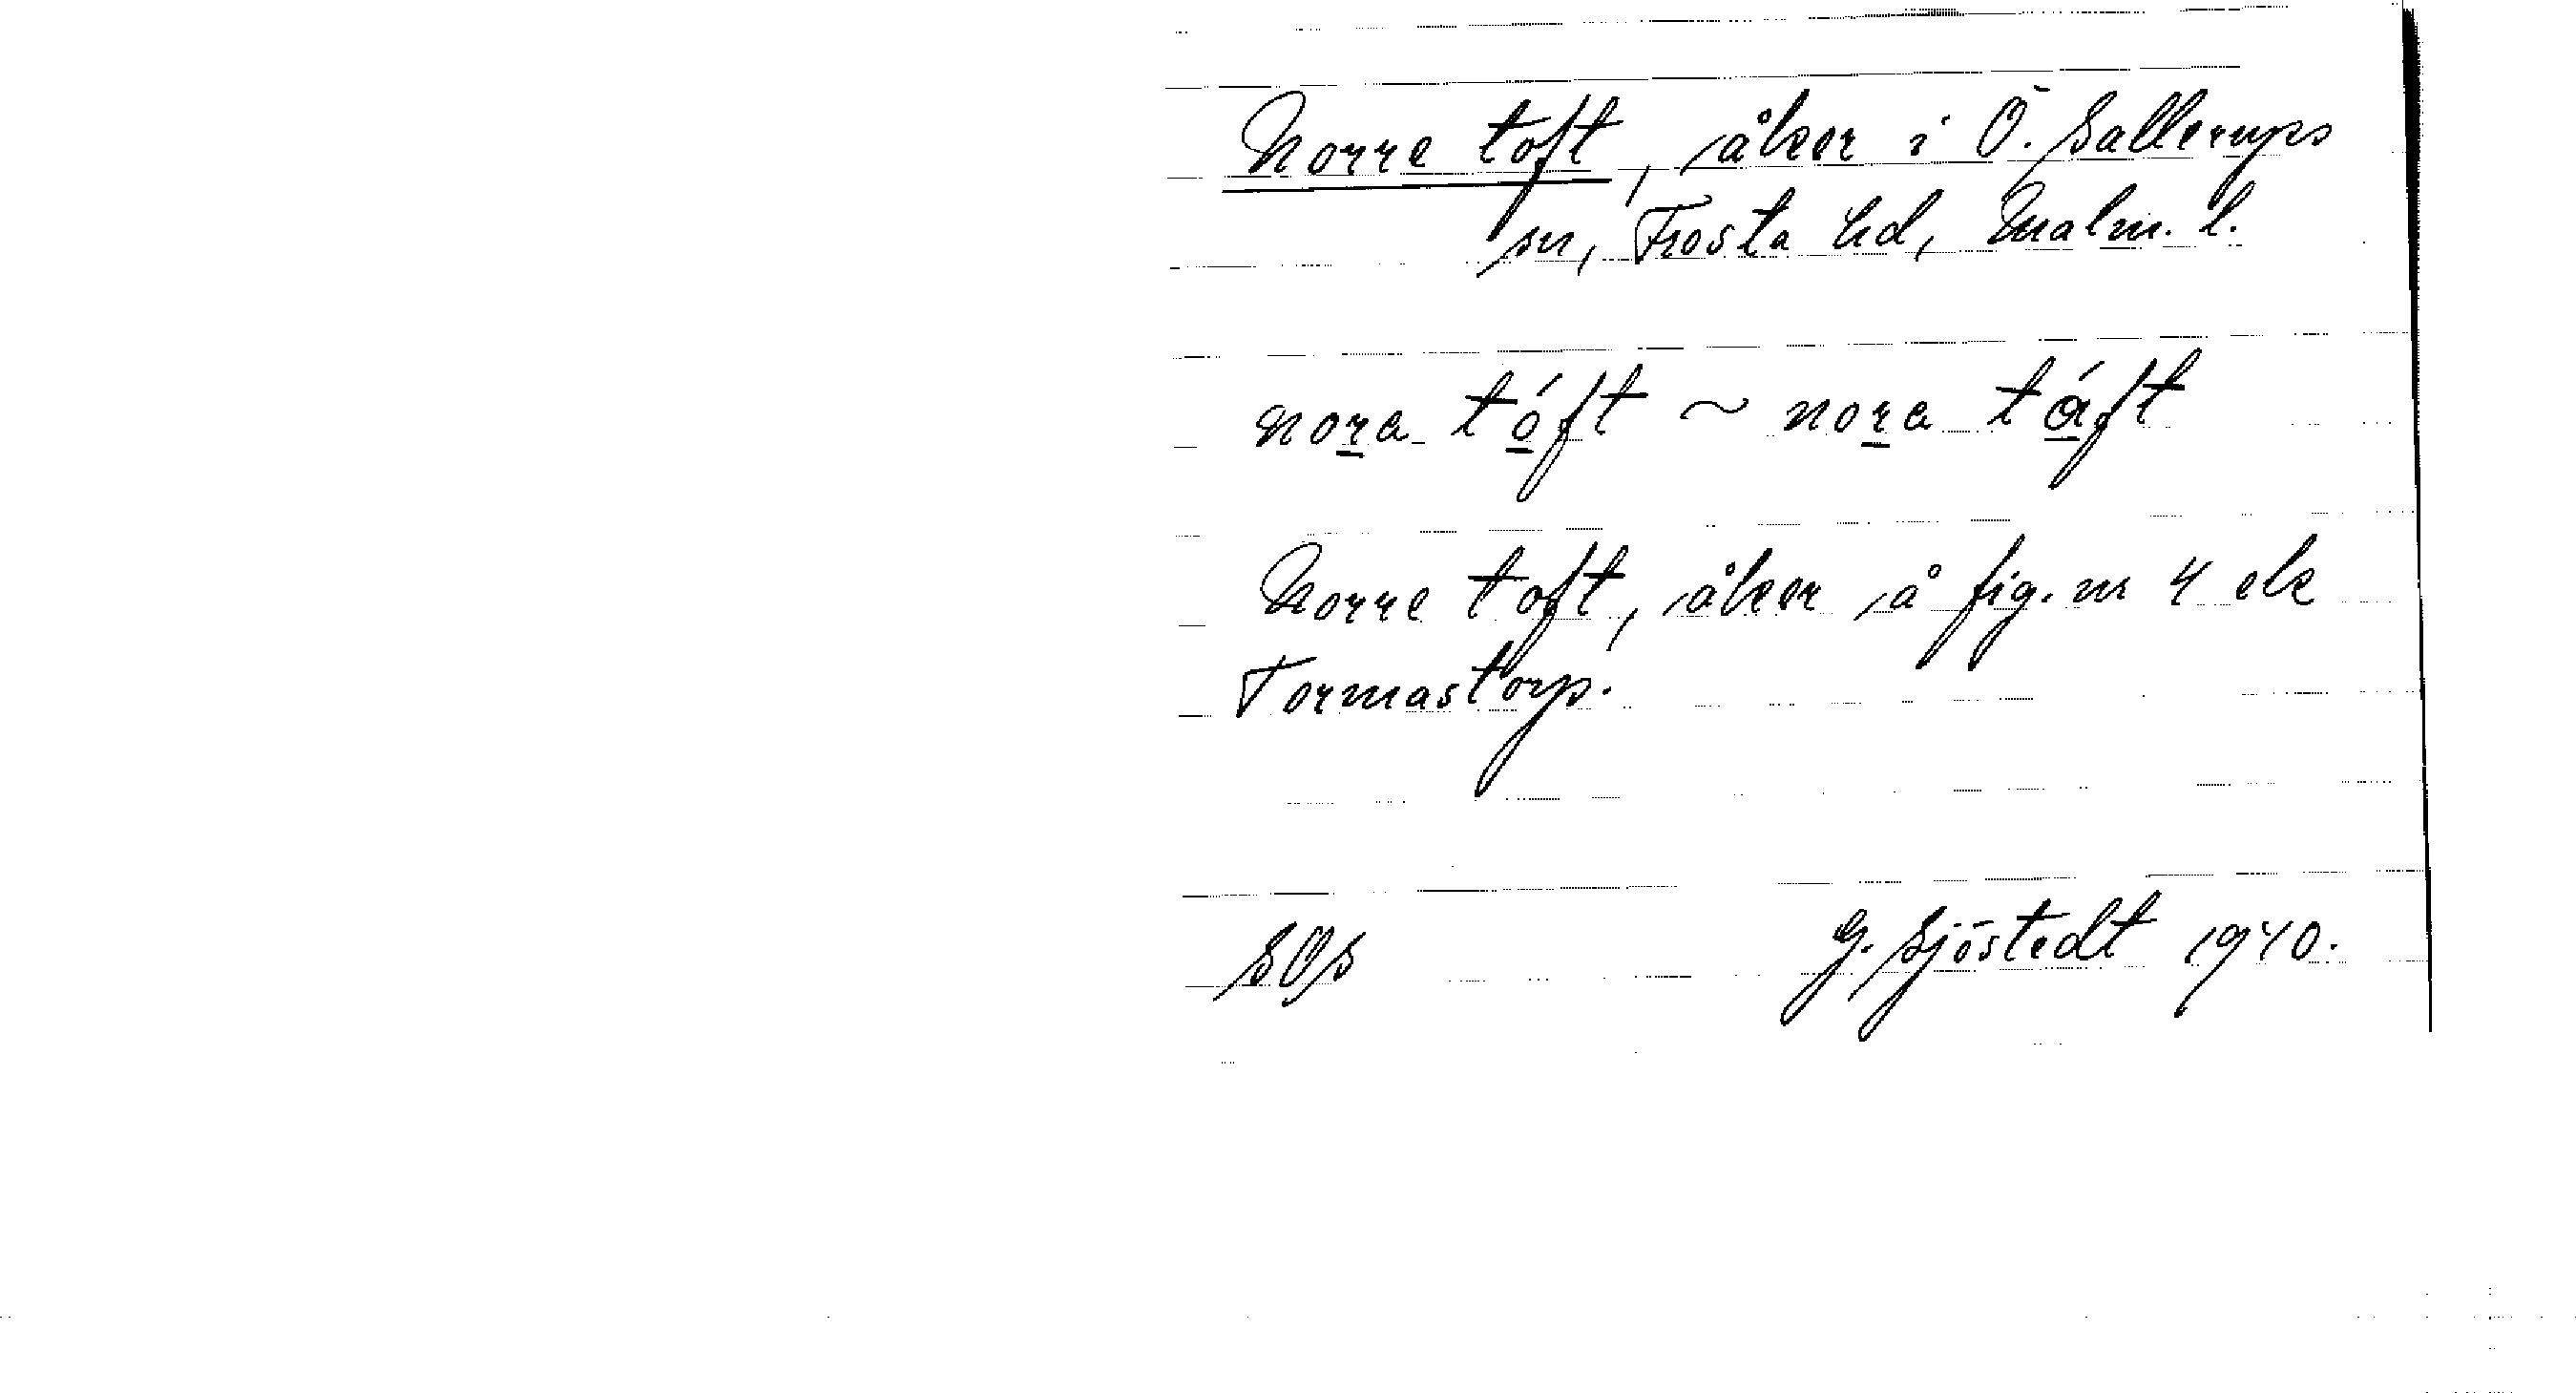 Norre toft, åker i Ö. Sallerups
sn, Frosta hd, Malm. l.
nora tóft ~ nora táft
Norre toft, åker å fig. nr 4 ek
Tormastorp.
SOs
G. Sjöstedt 1940.